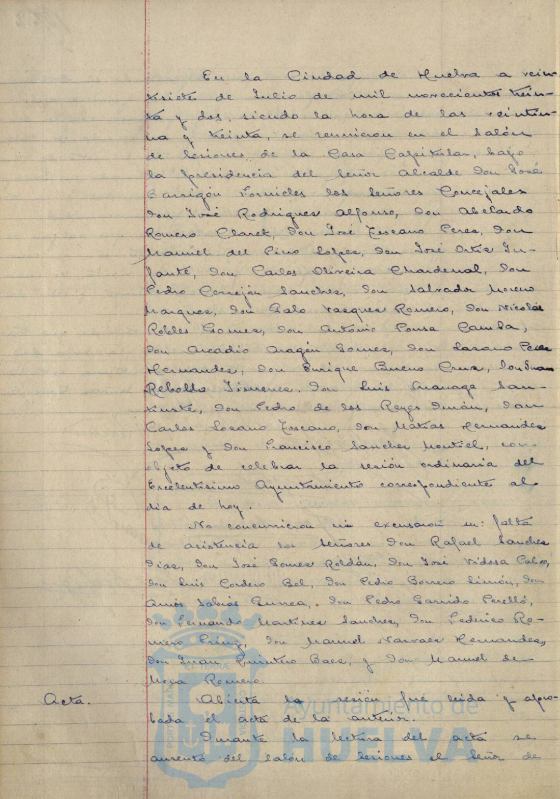 En la Ciudad de Huelva a vein-
tisiete de Julio de mil novecientos trein-
ta y dos, siendo la hora de las veintiu-
na y treinta, se reunieron en el salón
de sesiones de la Casa Capitular, bajo
la presidencia del Señor Alcalde don José
Barrigón Fornieles los señores Concejales
don José Rodriguez Alfonso, don Abelardo
Romero Claret, don José Toscano Perez, don
Manuel del Pino Lopez, don José Ortiz In-
fante, don Carlos Oliveira Chardenal, don
Pedro Cerrejón Sanchez, don Salvador Moreno
Marquez, don Galo Vazquez Romero, don Nicolás
Robles Gomez, don Antonio Pousa Camba,
don Arcadio Aragón Gomez, don Lazaro Perez
Hernandez, don Enrique Bueno Cruz, don Juan
Rebollo Jimenez, don Luis
don Pedro de los Reyes don
Carlos Lozano Toscano, don Matias Hernandez
Lopez y don Francisco Sanchez Montiel, con
objeto de celebrar la sesión ordinaria del
Excelentisimo Ayuntamiento correspondiente al
dia de hoy.
No concurrieron ni excusaron su falta
de asistencia los Señores don Rafael Sanchez
Diaz, don José Gomez Roldán, don José Vidosa Calvo,
don Luis Cordero Bel, don Pedro Borrero Limón, don
Amós Sabrás Gurrea, don Pedro Garrido Perelló,
don Fernando Martinez Sanchez, don Federico Ro-
mero don Manuel Narvaez Hernandez,
don Juan Quintero Baez, y don Manuel de
Mora Romero.
Acta. Abierta la sesión fué leida y apro-
bada el acta de la anterior.
Durante la lectura del acta se
aumentó del salón de sesiones el Señor de
Ayuntamiento de
HUELVA